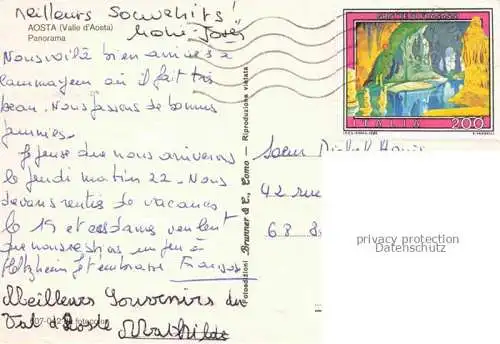 Meilleurs Souvenirs!
Marie-José
AOSTA (Valle d'Aosta)
Panorama
Nous voilà bien arrivés à
où il fait très
beau. Nous faisons de bonnes
journées.
Je pense que nous arriverons
le jeudi matin 22. Nous
devons rentrer de vacances
le 19 et ces dames veulent
que nous restions un peu à
Holtzheim. Je t'embrasse François
Meilleurs Souvenirs du
Val d'Aoste Mathilde
fotocolor
Fotoedizioni Brunner & C., Como - Riproduzione vietata
GROTTE DI FRASASSI
ITALIA 200
Soeur Marie
42 rue
68
privacy protection
Datenschutz